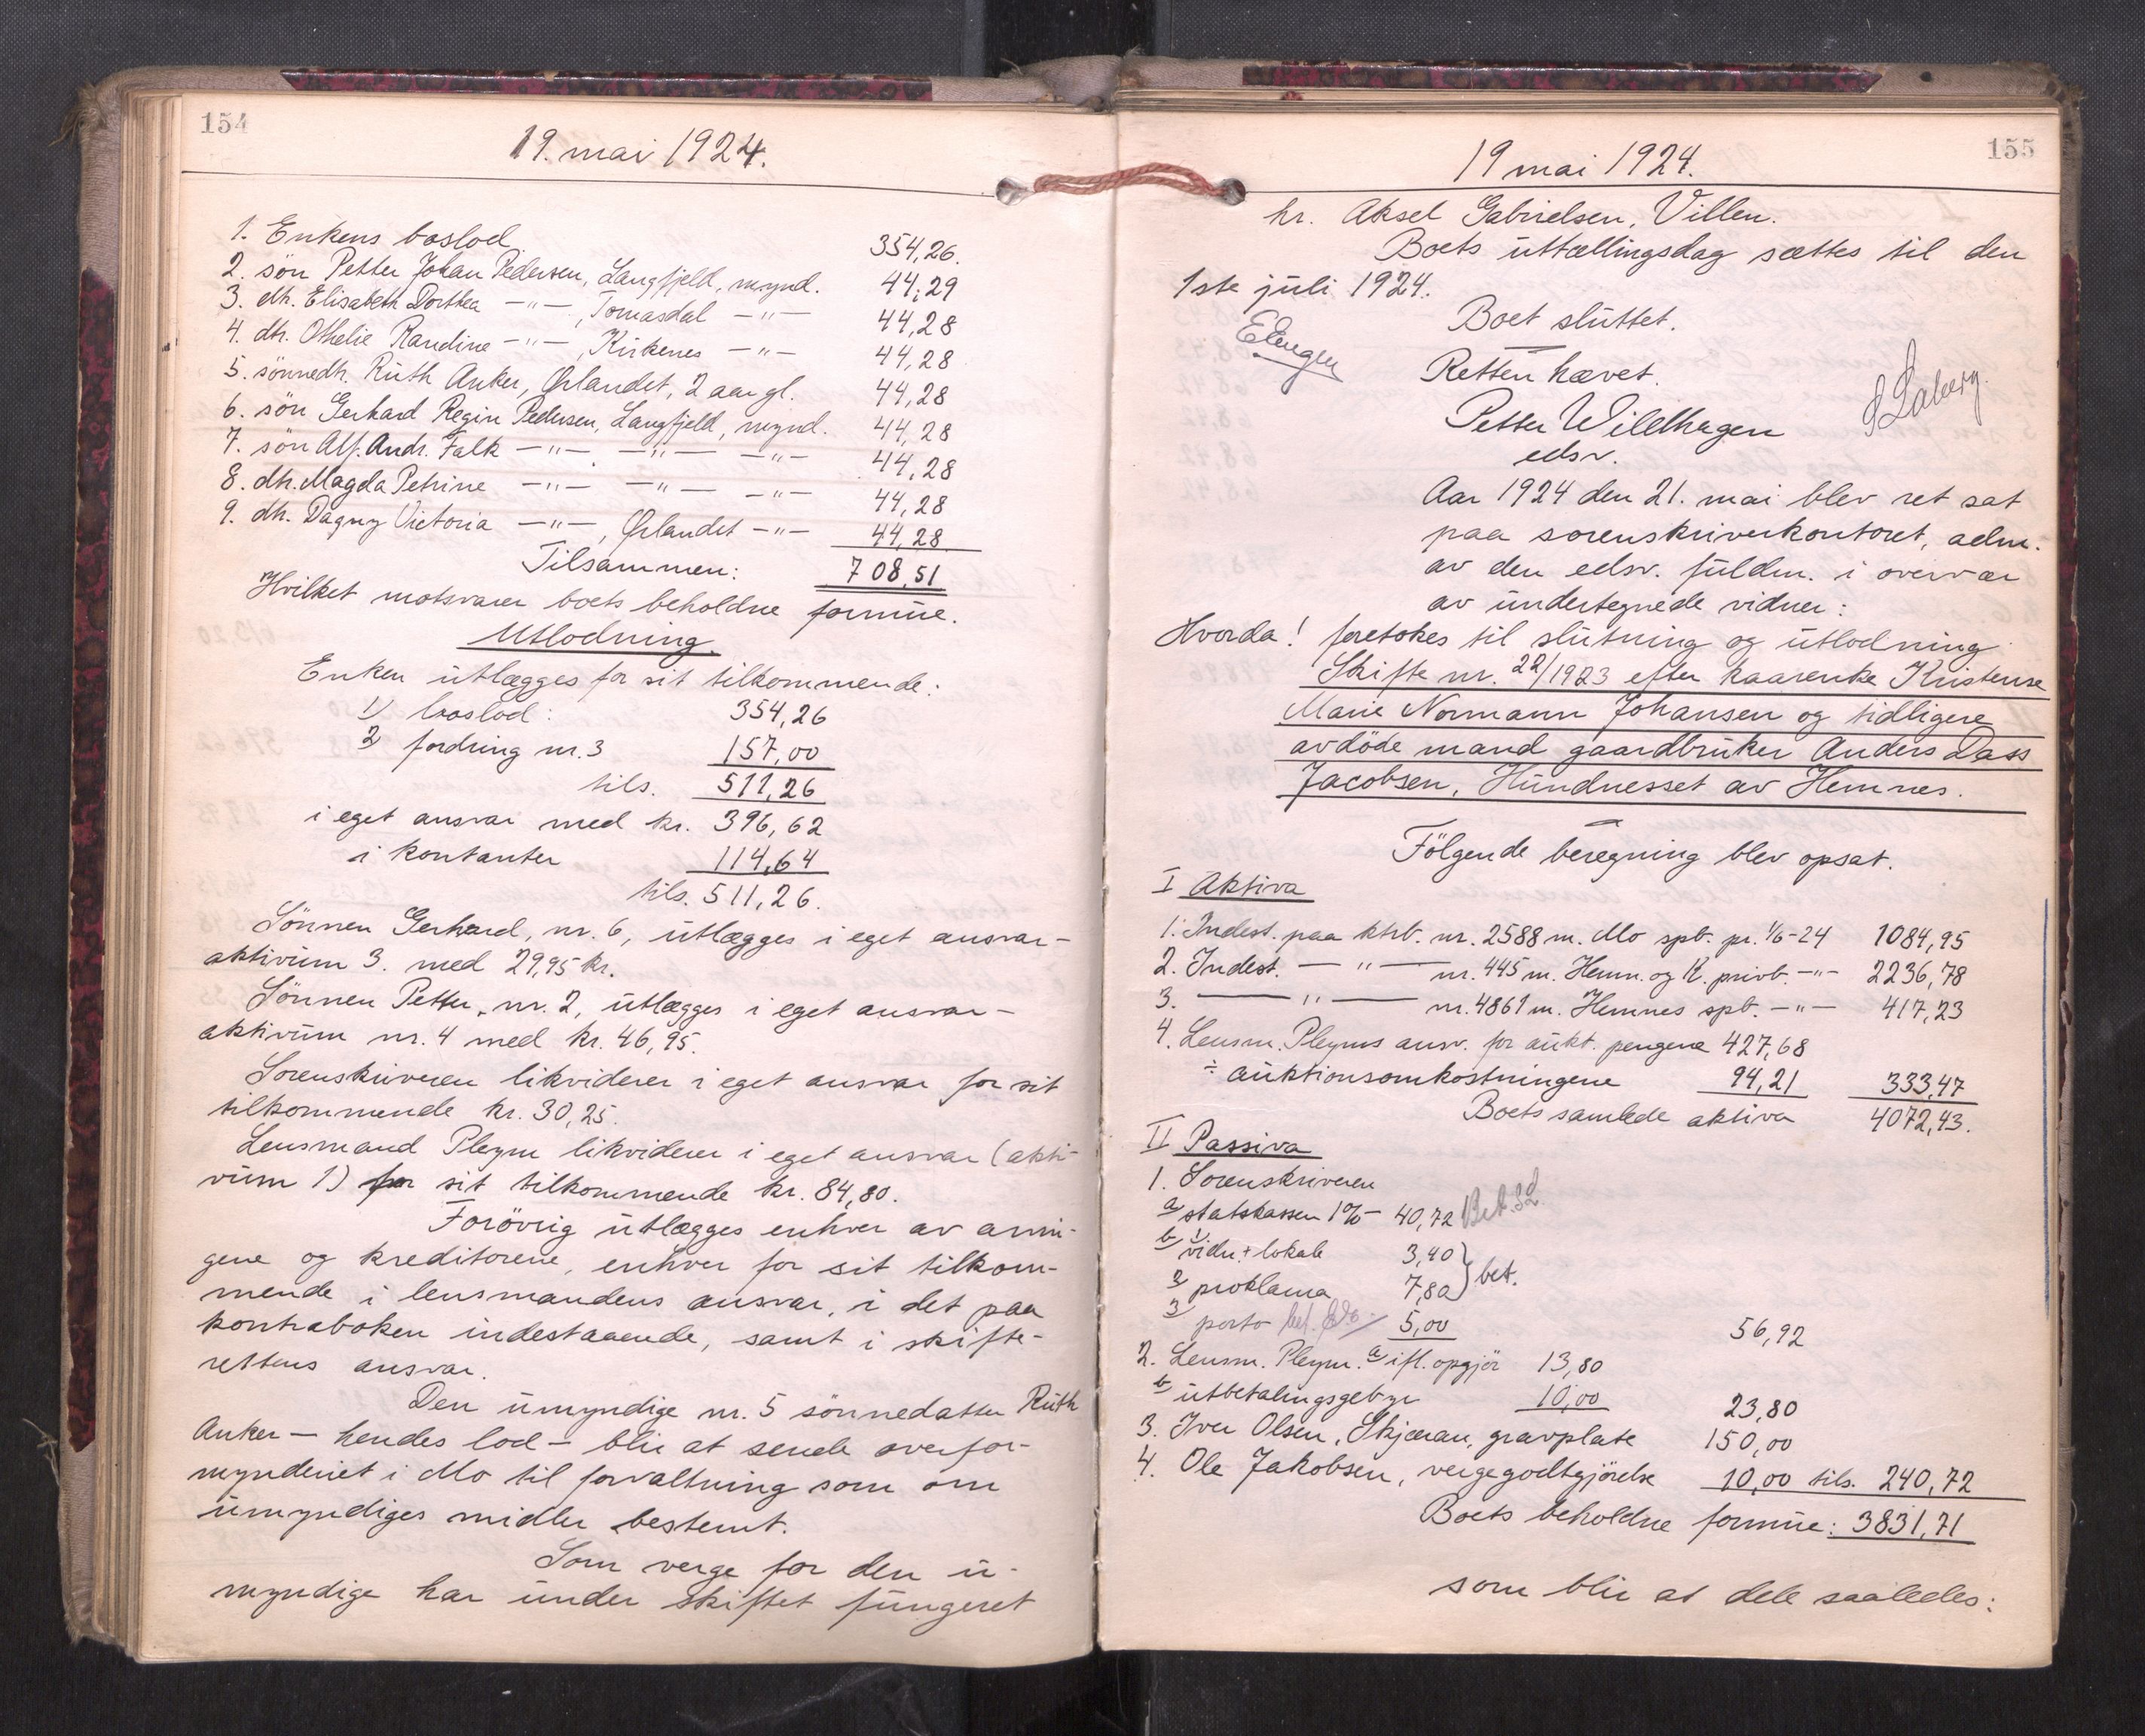 154
19. mai 1924.
1. Enkens boslod 354,26.
2. sön Petter Johan Pedersen, Langfjeld, mynd. 44,29
3. dtr. Elisabeth Dorthea —"— , Tomasdal —"— 44,28
4. dtr. Othelie Randine —"— , Kirkenes —"— 44,28
5. sönnedtr. Ruth Anker, Ørlandet, 2 aar gl. 44,28
6. sön Gerhard Regin Pedersen, Langfjeld, mynd. 44,28
7. sön Alf. Andr. Falk —"— —"— —"— 44,28
8. dtr. Magda Petrine —"— —"— —"— 44,28
9. dtr. Dagny Victoria —"— , Ørlandet —"— 44,28
Tilsammen: 708,51
Hvilket motsvarer boets beholdne formue.
Utlodning.
Enken utlægges for sit tilkommende:
1) boslod: 354,26
2) fordring nr. 3 157,00
tils. 511,26
i eget ansvar med kr. 396,62
i kontanter 114,64
tils. 511,26.
Sönnen Gerhard, nr. 6, utlægges i eget ansvar –
aktivum 3. med 29,95 kr.
Sönnen Petter, nr. 2, utlægges i eget ansvar –
aktivum nr. 4 med kr. 46,95.
Sorenskriveren likviderer i eget ansvar for sit
tilkommende kr. 30,25.
Lensmand Pleym likviderer i eget ansvar (akti-
vum 1) for sit tilkommende kr. 84,80.
Forövrig utlægges enhver av arvin-
gene og kreditorene, enhver for sit tilkom-
mende i lensmandens ansvar, i det paa
kontraboken indestaaende, samt i skifte-
rettens ansvar.
Den umyndige nr. 5 sönnedatter Ruth
Anker – hendes lod – blir at sende overfor-
mynderiet i Mo til forvaltning som om
umyndiges midler bestemt.
Som verge for den u-
myndige har under skiftet fungeret
155
19 mai 1924.
hr. Aksel Gabrielsen, Villen.
Boets uttællingsdag sættes til den
1ste juli 1924.
Boet sluttet.
Retten hævet.
Petter Wildhagen
edsv.
Aar 1924 den 21. mai blev ret sat
paa sorenskriverkontoret, adm.
av den edsv. fuldm. i overvær
av undertegnede vidner:
Hvorda! foretokes til slutning og utlodning
Skifte nr. 22/1923 efter kaarenke Kristense
Marie Normann Johansen og tidligere
avdöde mand gaardbruker Anders Dass
Jacobsen, Hundnesset av Hemnes.
Fölgende beregning blev opsat.
I Aktiva
1. Indest. paa ktrb. nr. 2588 m. Mo spb. pr. 1/6-24 1084,95
2. Indest. —"— nr. 445 m. Hemn. og K. privb. —"— 2236,78
3. —"— nr. 4861 m. Hemnes spb. —"— 417,23
4. Lensm. Pleyms ansv. for aukt. pengene 427,68
÷ auktionsomkostningene 94,21 333,47
Boets samlede aktiva 4072,43.
II Passiva
1. Sorenskriveren
a statskassen 1% – 40,72 Bet. SL
b 1) vidn. + lokale 3,40 } bet.
2) proklama 7,80
3) porto bet. 5,00 56,92
2. Lensm. Pleym. a ifl. opgjör 13,80
b utbetalingsgebyr 10,00 23,80
3. Iver Olsen, Skjæran, gravplate 150,00
4. Ole Jakobsen, vergegodtgjörelse 10,00 tils. 240,72
Boets beholdne formue: 3831,71
som blir at dele saaledes: